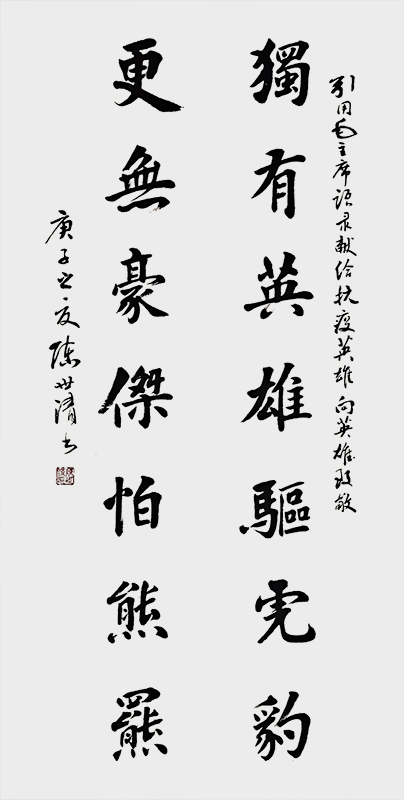 引用毛主席语录献给抗疫英雄向英雄致敬
獨有英雄驅虎豹
更無豪傑怕熊羆
庚子之夏陈世书